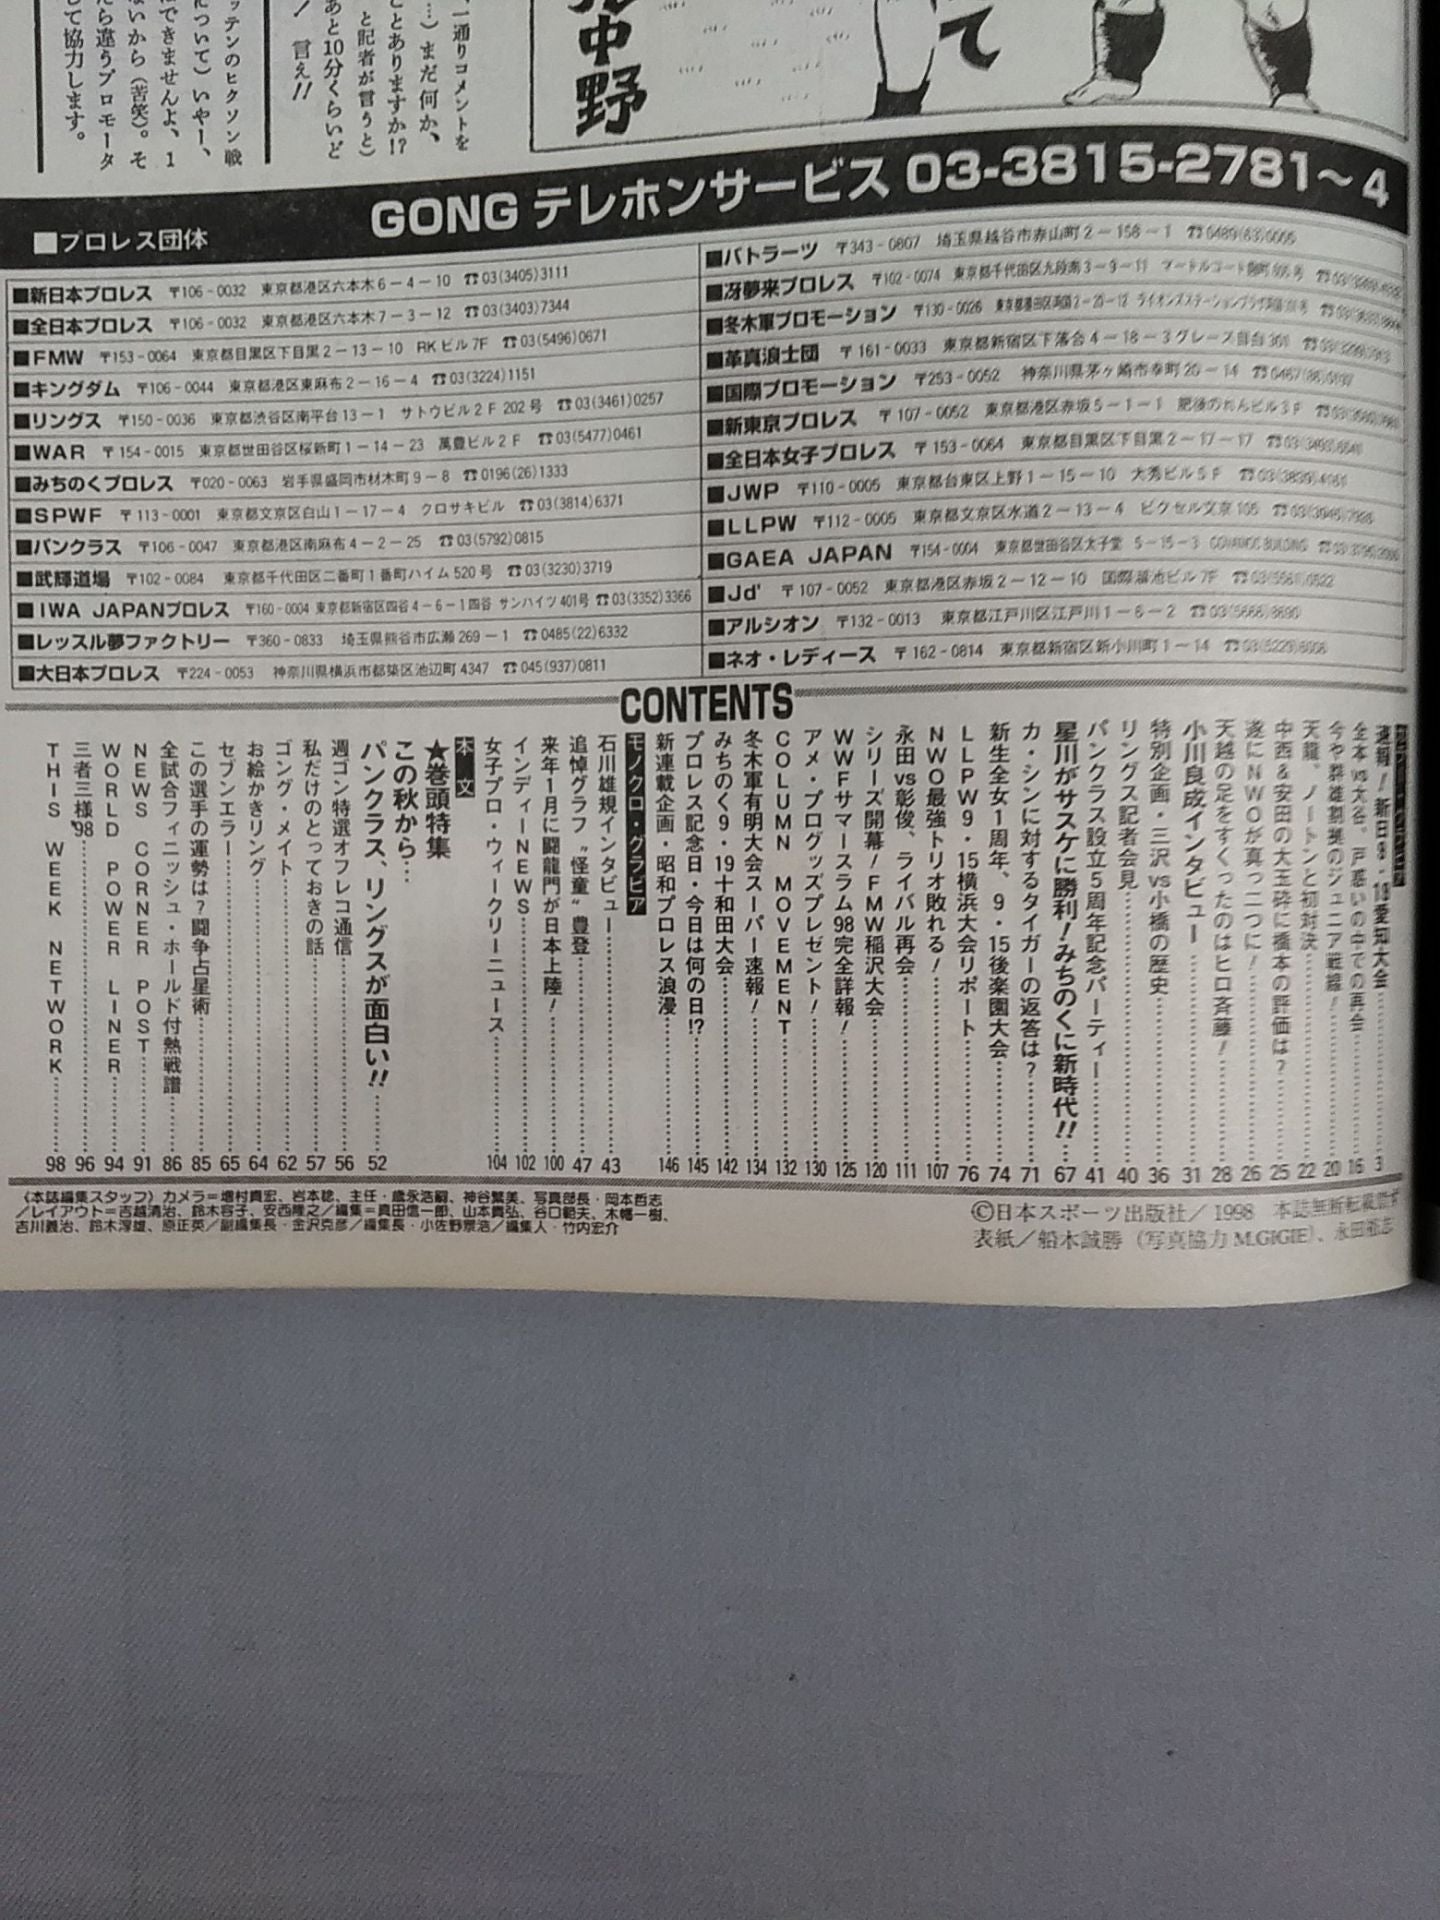 一通りコメントを
…）まだ何か、
ことありますか!?
と記者が言うと）
あと10分くらいど
！　言え!!
ッテンのヒクソン戦
について）いやー、
できませんよ、1
ないから（苦笑）。そ
たら違うプロモータ
して協力します。
中野
て
GONG テレホンサービス 03-3815-2781～4
■プロレス団体
■新日本プロレス 〒106-0032 東京都港区六本木6-4-10 ☎03(3405)3111
■全日本プロレス 〒106-0032 東京都港区六本木7-3-12 ☎03(3403)7344
■FMW 〒153-0064 東京都目黒区下目黒2-13-10 RKビル7F ☎03(5496)0671
■キングダム 〒106-0044 東京都港区東麻布2-16-4 ☎03(3224)1151
■リングス 〒150-0036 東京都渋谷区南平台13-1 サトウビル2F 202号 ☎03(3461)0257
■WAR 〒154-0015 東京都世田谷区桜新町1-14-23 萬豊ビル2F ☎03(5477)0461
■みちのくプロレス 〒020-0063 岩手県盛岡市材木町9-8 ☎0196(26)1333
■SPWF 〒113-0001 東京都文京区白山1-17-4 クロサキビル ☎03(3814)6371
■パンクラス 〒106-0047 東京都港区南麻布4-2-25 ☎03(5792)0815
■武輝道場 〒102-0084 東京都千代田区二番町1番町ハイム520号 ☎03(3230)3719
■IWA JAPANプロレス 〒160-0004 東京都新宿区四谷4-6-1四谷サンハイツ401号 ☎03(3352)3366
■レッスル夢ファクトリー 〒360-0833 埼玉県熊谷市広瀬269-1 ☎0485(22)6332
■大日本プロレス 〒224-0053 神奈川県横浜市都築区池辺町4347 ☎045(937)0811
■バトラーツ 〒343-0807 埼玉県越谷市赤山町2-158-1 ☎0489(63)0005
■冴夢来プロレス 〒102-0074 東京都千代田区九段南3-9-11
■冬木軍プロモーション 〒130-0026 東京都墨田区両国2-20-12
■革真浪士団 〒161-0033 東京都新宿区下落合4-18-3グレース目白301
■国際プロモーション 〒253-0052 神奈川県茅ヶ崎市幸町20-14
■新東京プロレス 〒107-0052 東京都港区赤坂5-1-1 肥後のれんビル3F
■全日本女子プロレス 〒153-0064 東京都目黒区下目黒2-17-17
■JWP 〒110-0005 東京都台東区上野1-15-10 大秀ビル5F
■LLPW 〒112-0005 東京都文京区水道2-13-4 ピクセル文京105
■GAEA JAPAN 〒154-0004 東京都世田谷区太子堂 5-15-3
■Jd' 〒107-0052 東京都港区赤坂2-12-10 国際溜池ビル7F
■アルシオン 〒132-0013 東京都江戸川区江戸川1-6-2
■ネオ・レディース 〒162-0814 東京都新宿区新小川町1-14
CONTENTS
速報！新日9・18愛知大会 3
全本vs大谷。戸惑いの中での再会 16
今や群雄割拠のジュニア戦線！ 20
天龍、ノートンと初対決 22
中西＆安田の大玉砕に橋本の評価は？ 25
遂にNWOが真っ二つに！ 26
天越の足をすくったのはヒロ斉藤！ 28
小川良成インタビュー 31
特別企画・三沢vs小橋の歴史 36
リングス記者会見 40
パンクラス設立5周年記念パーティー 41
星川がサスケに勝利！みちのくに新時代!! 67
カ・シンに対するタイガーの返答は？ 71
新生全女1周年、9・15後楽園大会 74
LLPW9・15横浜大会リポート 76
NWO最強トリオ敗れる！ 107
永田vs彰俊、ライバル再会 111
シリーズ開幕！FMW稲沢大会 120
WWFサマースラム98完全詳報！ 125
アメ・プログッズプレゼント！ 130
COLUMN MOVEMENT 132
冬木軍有明大会スーパー速報！ 134
みちのく9・19十和田大会 142
プロレス記念日・今日は何の日!? 145
新連載企画・昭和プロレス浪漫 146
モノクロ・グラビア
石川雄規インタビュー 43
追悼グラフ“怪童”豊登 47
来年1月に闘龍門が日本上陸！ 100
インディーNEWS 102
女子プロ・ウィークリーニュース 104
本文
★巻頭特集
この秋から…
パンクラス、リングスが面白い!! 52
週ゴン特選オフレコ通信 56
私だけのとっておきの話 57
ゴング・メイト 62
お絵かきリング 64
セブンエラー 65
この選手の運勢は？闘争占星術 85
全試合フィニッシュ・ホールド付熱戦譜 86
NEWS CORNER POST 91
WORLD POWER LINER 94
三者三様'98 96
THIS WEEK NETWORK 98
〈本誌編集スタッフ〉カメラ＝増村貴宏、岩本稔、主任・歳永浩嗣、神谷繁美、写真部長・岡本哲志
／レイアウト＝吉越清治、鈴木容子、安西隆之／編集＝真田信一郎、山本貴弘、谷口範夫、木幡一樹、
吉川義治、鈴木淳雄、原正英／副編集長・金沢克彦／編集長・小佐野景浩／編集人・竹内宏介
©日本スポーツ出版社／1998 本誌無断転載厳禁
表紙／船木誠勝（写真協力M.GIGIE）、永田裕志